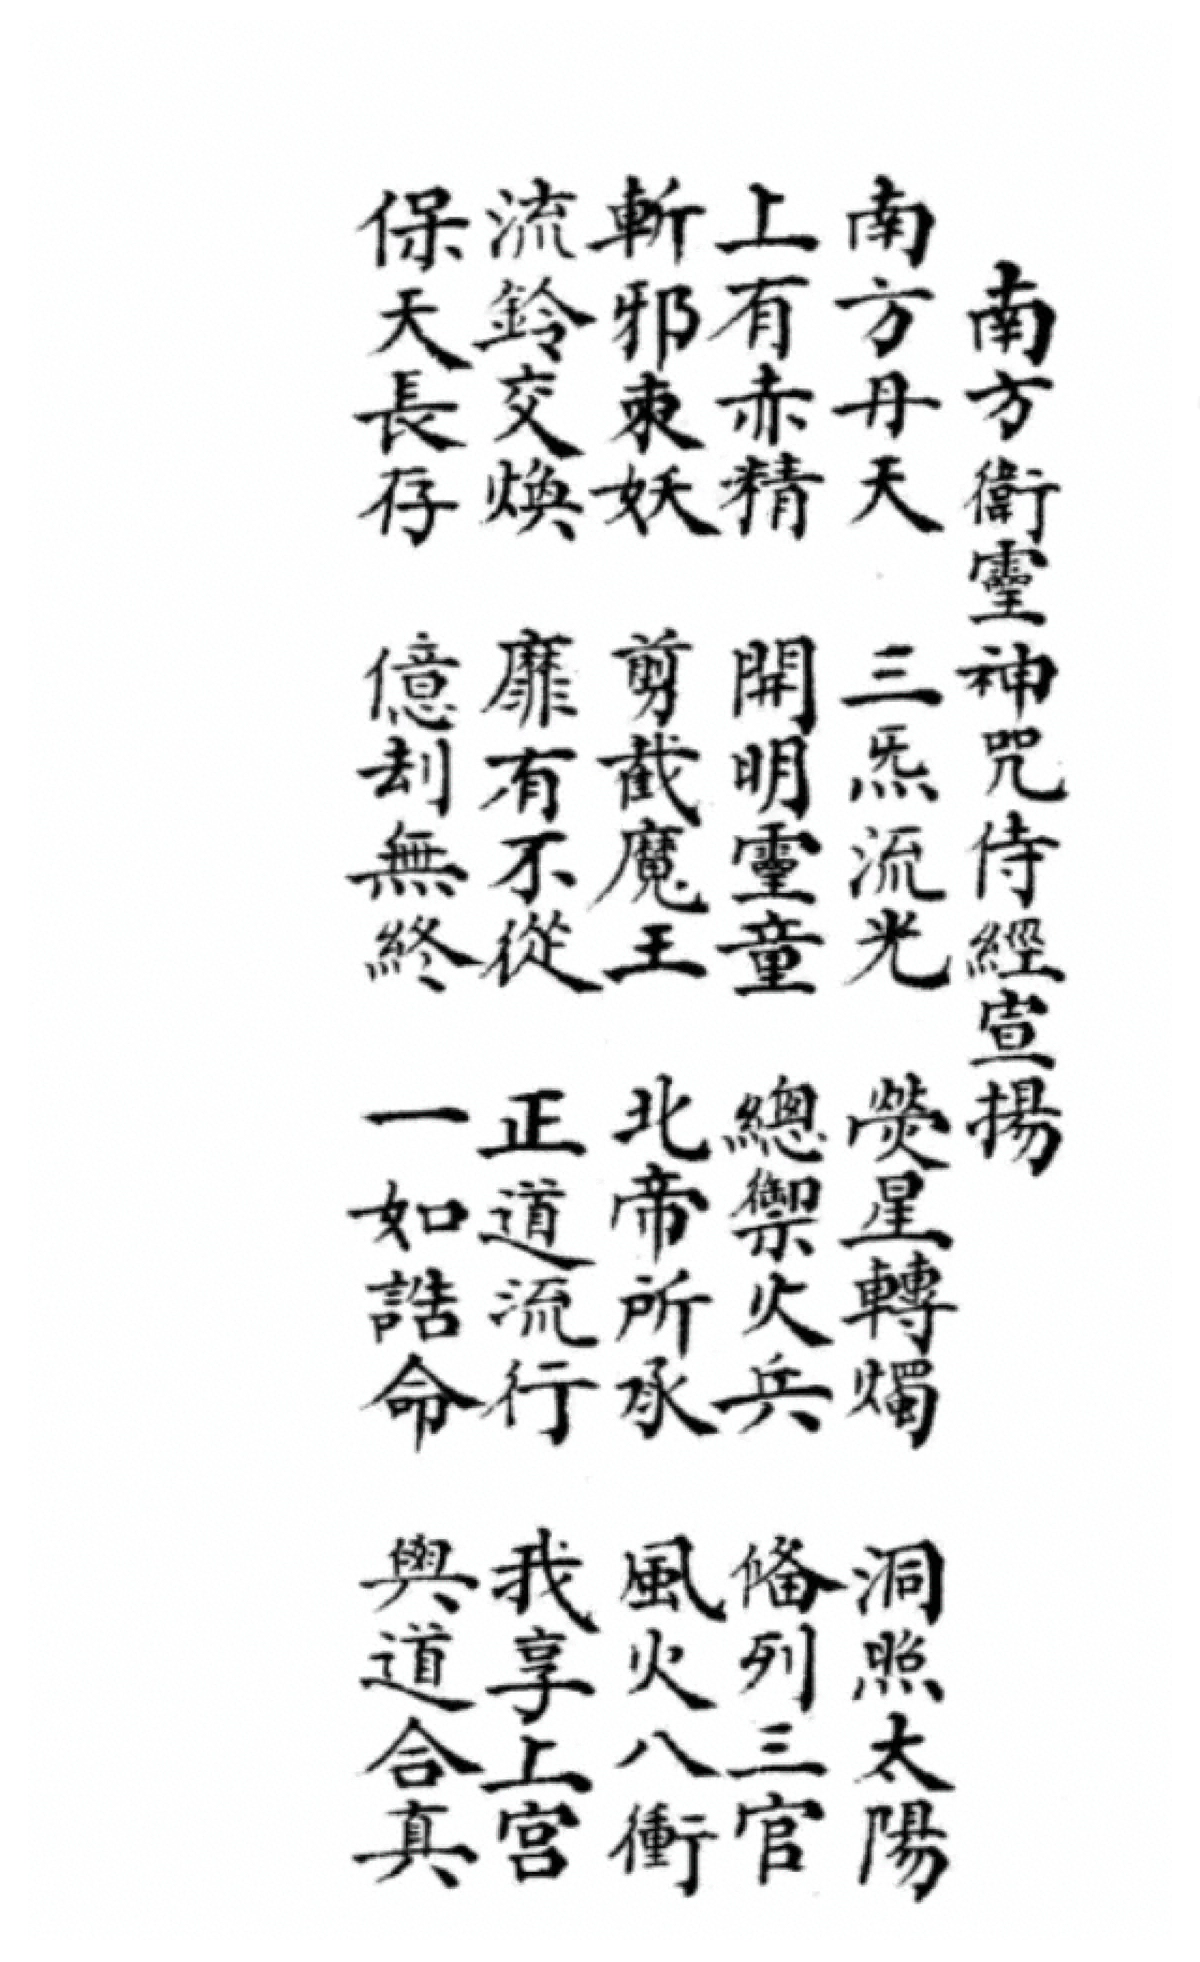 南方衛靈神咒侍經宣揚
南方丹天　三炁流光　熒星轉燭　洞照太陽
上有赤精　開明靈童　總禦火兵　備列三官
斬邪束妖　剪截魔王　北帝所承　風火八衝
流鈴交煥　靡有不從　正道流行　我享上宮
保天長存　億刼無終　一如誥命　與道合真